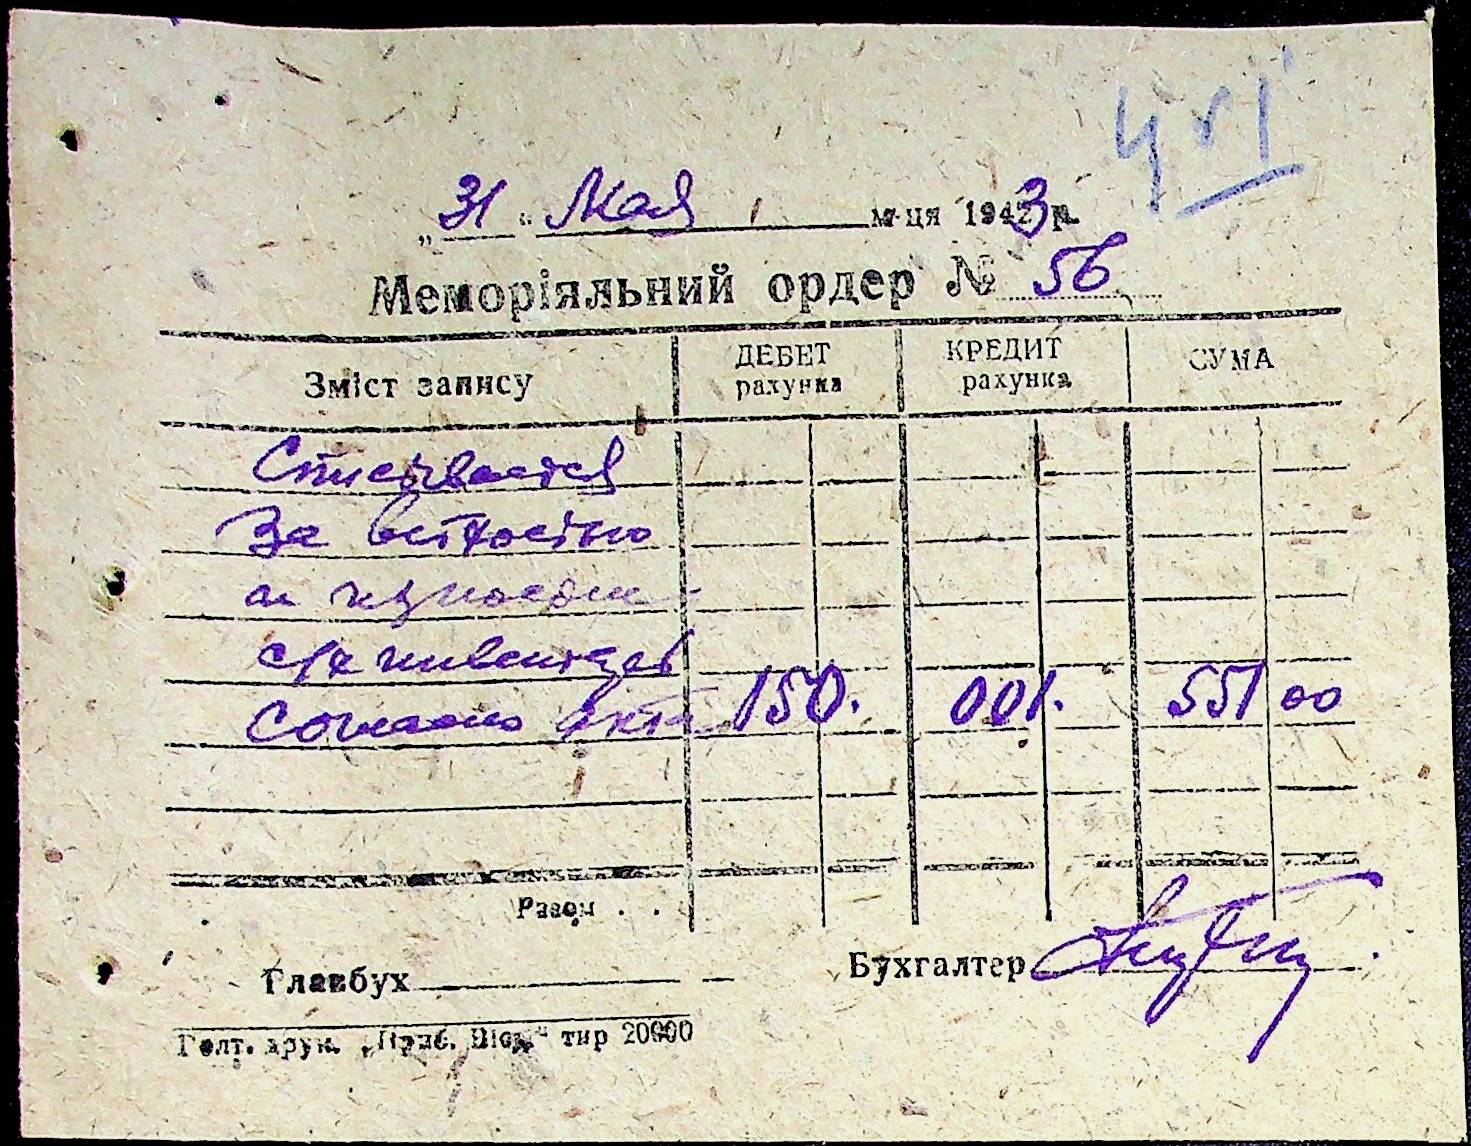 „31“ Мая м-ця 1943 р.
Меморіяльний ордер № 56
Зміст запису ДЕБЕТ рахунка КРЕДИТ рахунка СУМА
Списывается
За ветхостью
и износом
с/х инвентарь
Согласно Акта 150. 001. 551 00
Разом . .
Главбух Бухгалтер
Голт. друк. „Приб. Вісн.“ тир 20000